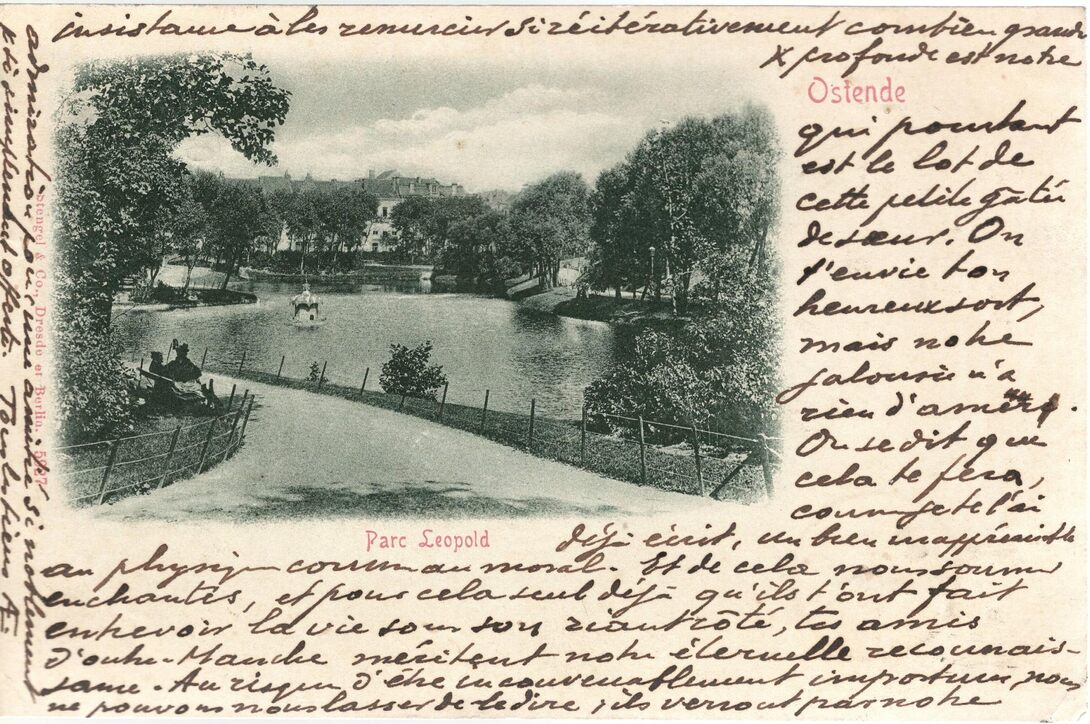 Ostende
qui pourtant
est le lot de
cette petite gatée
de sœur. On
t'envie ton
heureux sort,
mais notre
jalousie n'a
rien d'amère.
On se dit que
cela te fera,
comme je te l'ai
déjà écrit, un bien inappréciable
au physique comme au moral. Et de cela nous sommes
enchantés, et pour cela seul déjà qu'ils t'ont fait
entrevoir la vie sous son riant côté, tes amis
d'outre-Manche méritent notre éternelle reconnais-
sance. Au risque d'être inconvenablement importuns, nous
ne pouvons nous lasser de le dire ; ils verront par notre
insistance à les remercier si réitérativement combien grande
X profonde est notre
admiration pour une amitié si noblement
&
Parc Leopold
Stengel & Co., Dresde et Berlin. 5927